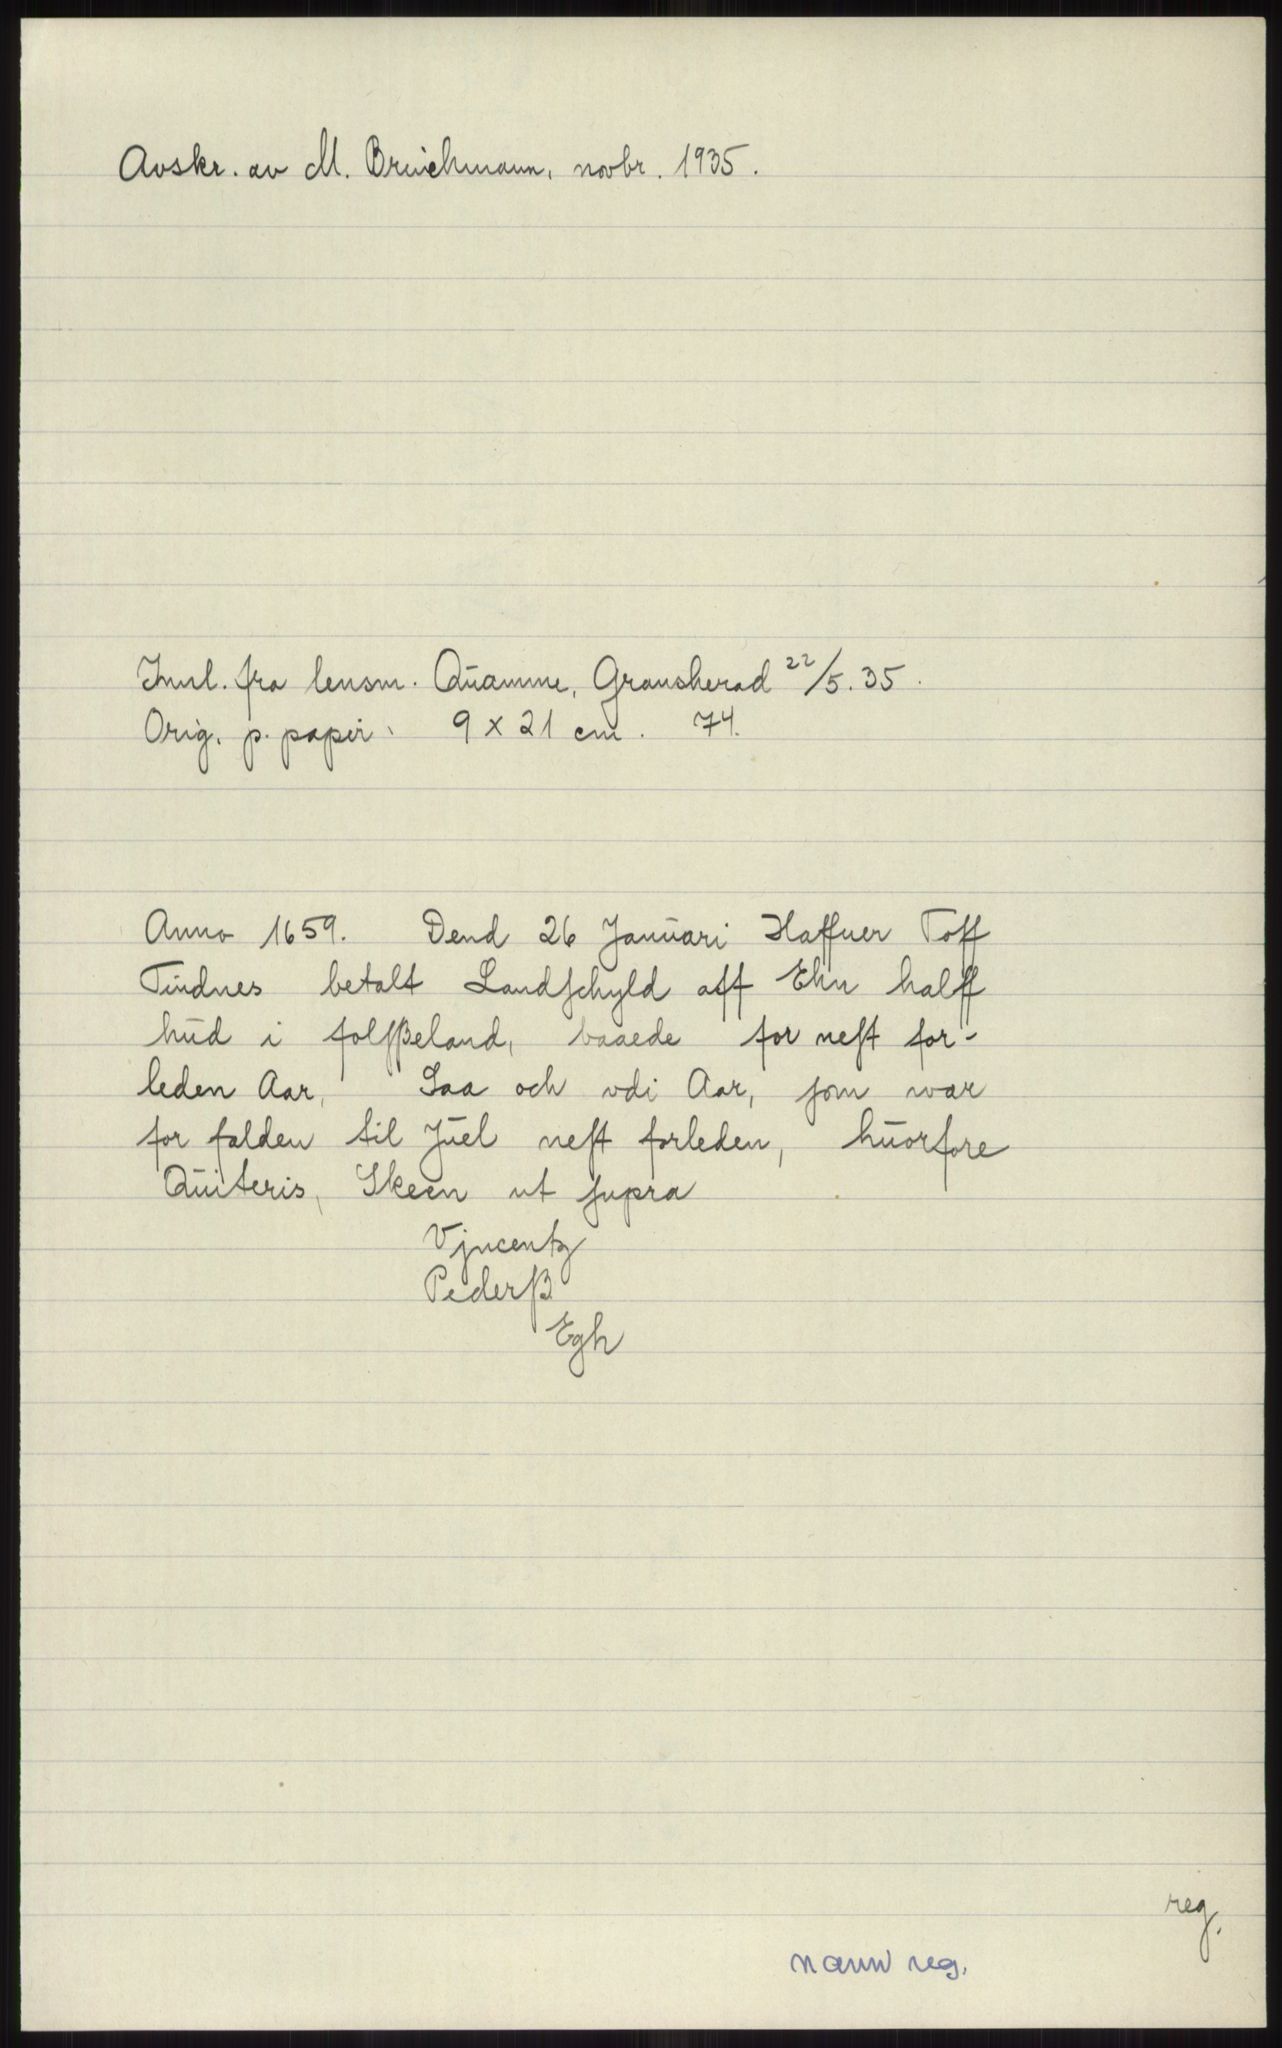 Avskr. av M. Bruichmann, novbr. 1935.
Innl. fra lensm. Qūamme, Gransherad 22/5. 35.
Orig. p. papir. 9 x 21 cm. 74.
Anno 1659. Dend 26 Janūari Haffuer Toff
Tindnes betalt Landſchyld aff Ehn halff
hūd i folſßeland, baaede for neſt for-
leden Aar, Saa och vdi Aar, ſom war
for falden til Jūel neſt forleden, hūorfore
Qūiteris, Skeen ut ſupra
Vjncentz
Pederſß
Egh
reg.
navn reg.